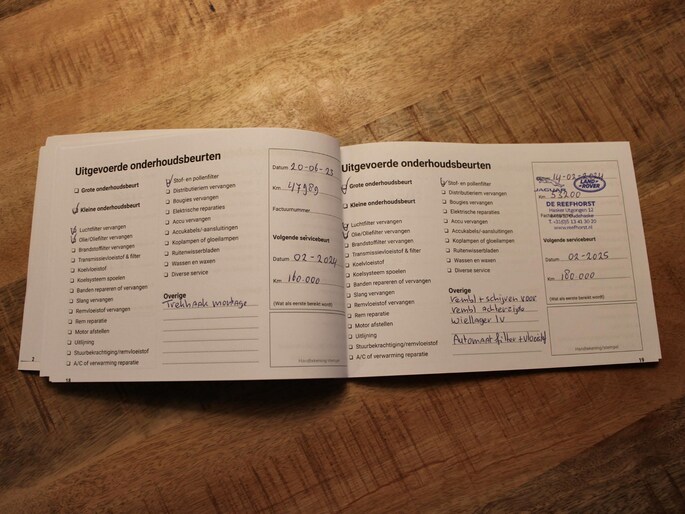 Uitgevoerde onderhoudsbeurten
Grote onderhoudsbeurt
Kleine onderhoudsbeurt
Luchtfilter vervangen
Olie/Oliefilter vervangen
Brandstoffilter vervangen
Transmissievloeistof & filter
Koelvloeistof
Koelsysteem spoelen
Banden repareren of vervangen
Slang vervangen
Remvloeistof vervangen
Rem reparatie
Motor afstellen
Uitlijning
Stuurbekrachtiging/remvloeistof
A/C of verwarming reparatie
Stof- en pollenfilter
Distributieriem vervangen
Bougies vervangen
Elektrische reparaties
Accu vervangen
Accukabels/-aansluitingen
Koplampen of gloeilampen
Ruitenwisserbladen
Wassen en waxen
Diverse service
Overige
Trekhaak montage
Datum 20-06-23
Km 47989
Factuurnummer
Volgende servicebeurt
Datum 02-2024
Km 160.000
(Wat als eerste bereikt wordt)
Handtekening/stempel
2
18
Uitgevoerde onderhoudsbeurten
Grote onderhoudsbeurt
Kleine onderhoudsbeurt
Luchtfilter vervangen
Olie/Oliefilter vervangen
Brandstoffilter vervangen
Transmissievloeistof & filter
Koelvloeistof
Koelsysteem spoelen
Banden repareren of vervangen
Slang vervangen
Remvloeistof vervangen
Rem reparatie
Motor afstellen
Uitlijning
Stuurbekrachtiging/remvloeistof
A/C of verwarming reparatie
Stof- en pollenfilter
Distributieriem vervangen
Bougies vervangen
Elektrische reparaties
Accu vervangen
Accukabels/-aansluitingen
Koplampen of gloeilampen
Ruitenwisserbladen
Wassen en waxen
Diverse service
Overige
rembl + schijven voor
rembl achterzijde
wiellager LV
Automaat filter + vloeistof
14-02-2024
JAGUAR
LAND-ROVER
Km 53200
DE REEFHORST
www.reefhorst.nl
Volgende servicebeurt
Datum 02-2025
Km 180.000
(Wat als eerste bereikt wordt)
Handtekening/stempel
19